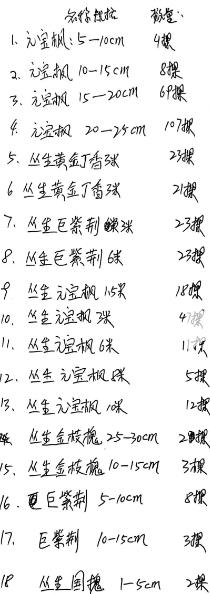 名称规格 数量:
1. 元宝枫:5-10cm 4棵
2. 元宝枫 10-15cm 8棵
3. 元宝枫 15-20cm 69棵
4. 元宝枫 20-25cm 107棵
5. 丛生黄金丁香3米 23棵
6 丛生黄金丁香3米 21棵
7. 丛生巨紫荆 3米 23棵
8. 丛生巨紫荆 6米 23棵
9 丛生元宝枫 1.5米 18棵
10. 丛生元宝枫 3米 棵
11. 丛生元宝枫 6米 棵
12. 丛生元宝枫 8米 5棵
13. 丛生元宝枫 10米 12棵
丛生金枝槐 25-30cm 棵
15. 丛生金枝槐 10-15cm 3棵
16. 巨紫荆 5-10cm 8棵
17. 巨紫荆 10-15cm 3棵
18 丛生国槐 1-5cm 2棵